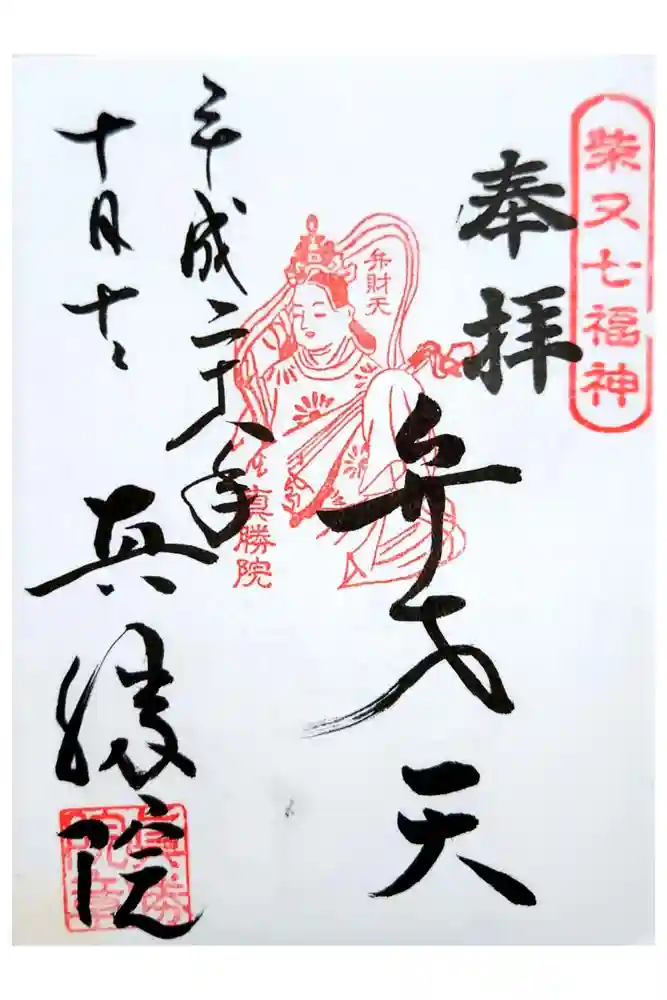 柴又七福神
奉拝
弁才天
弁財天
真勝院
平成二十八年
十月十
真勝院
眞勝院章